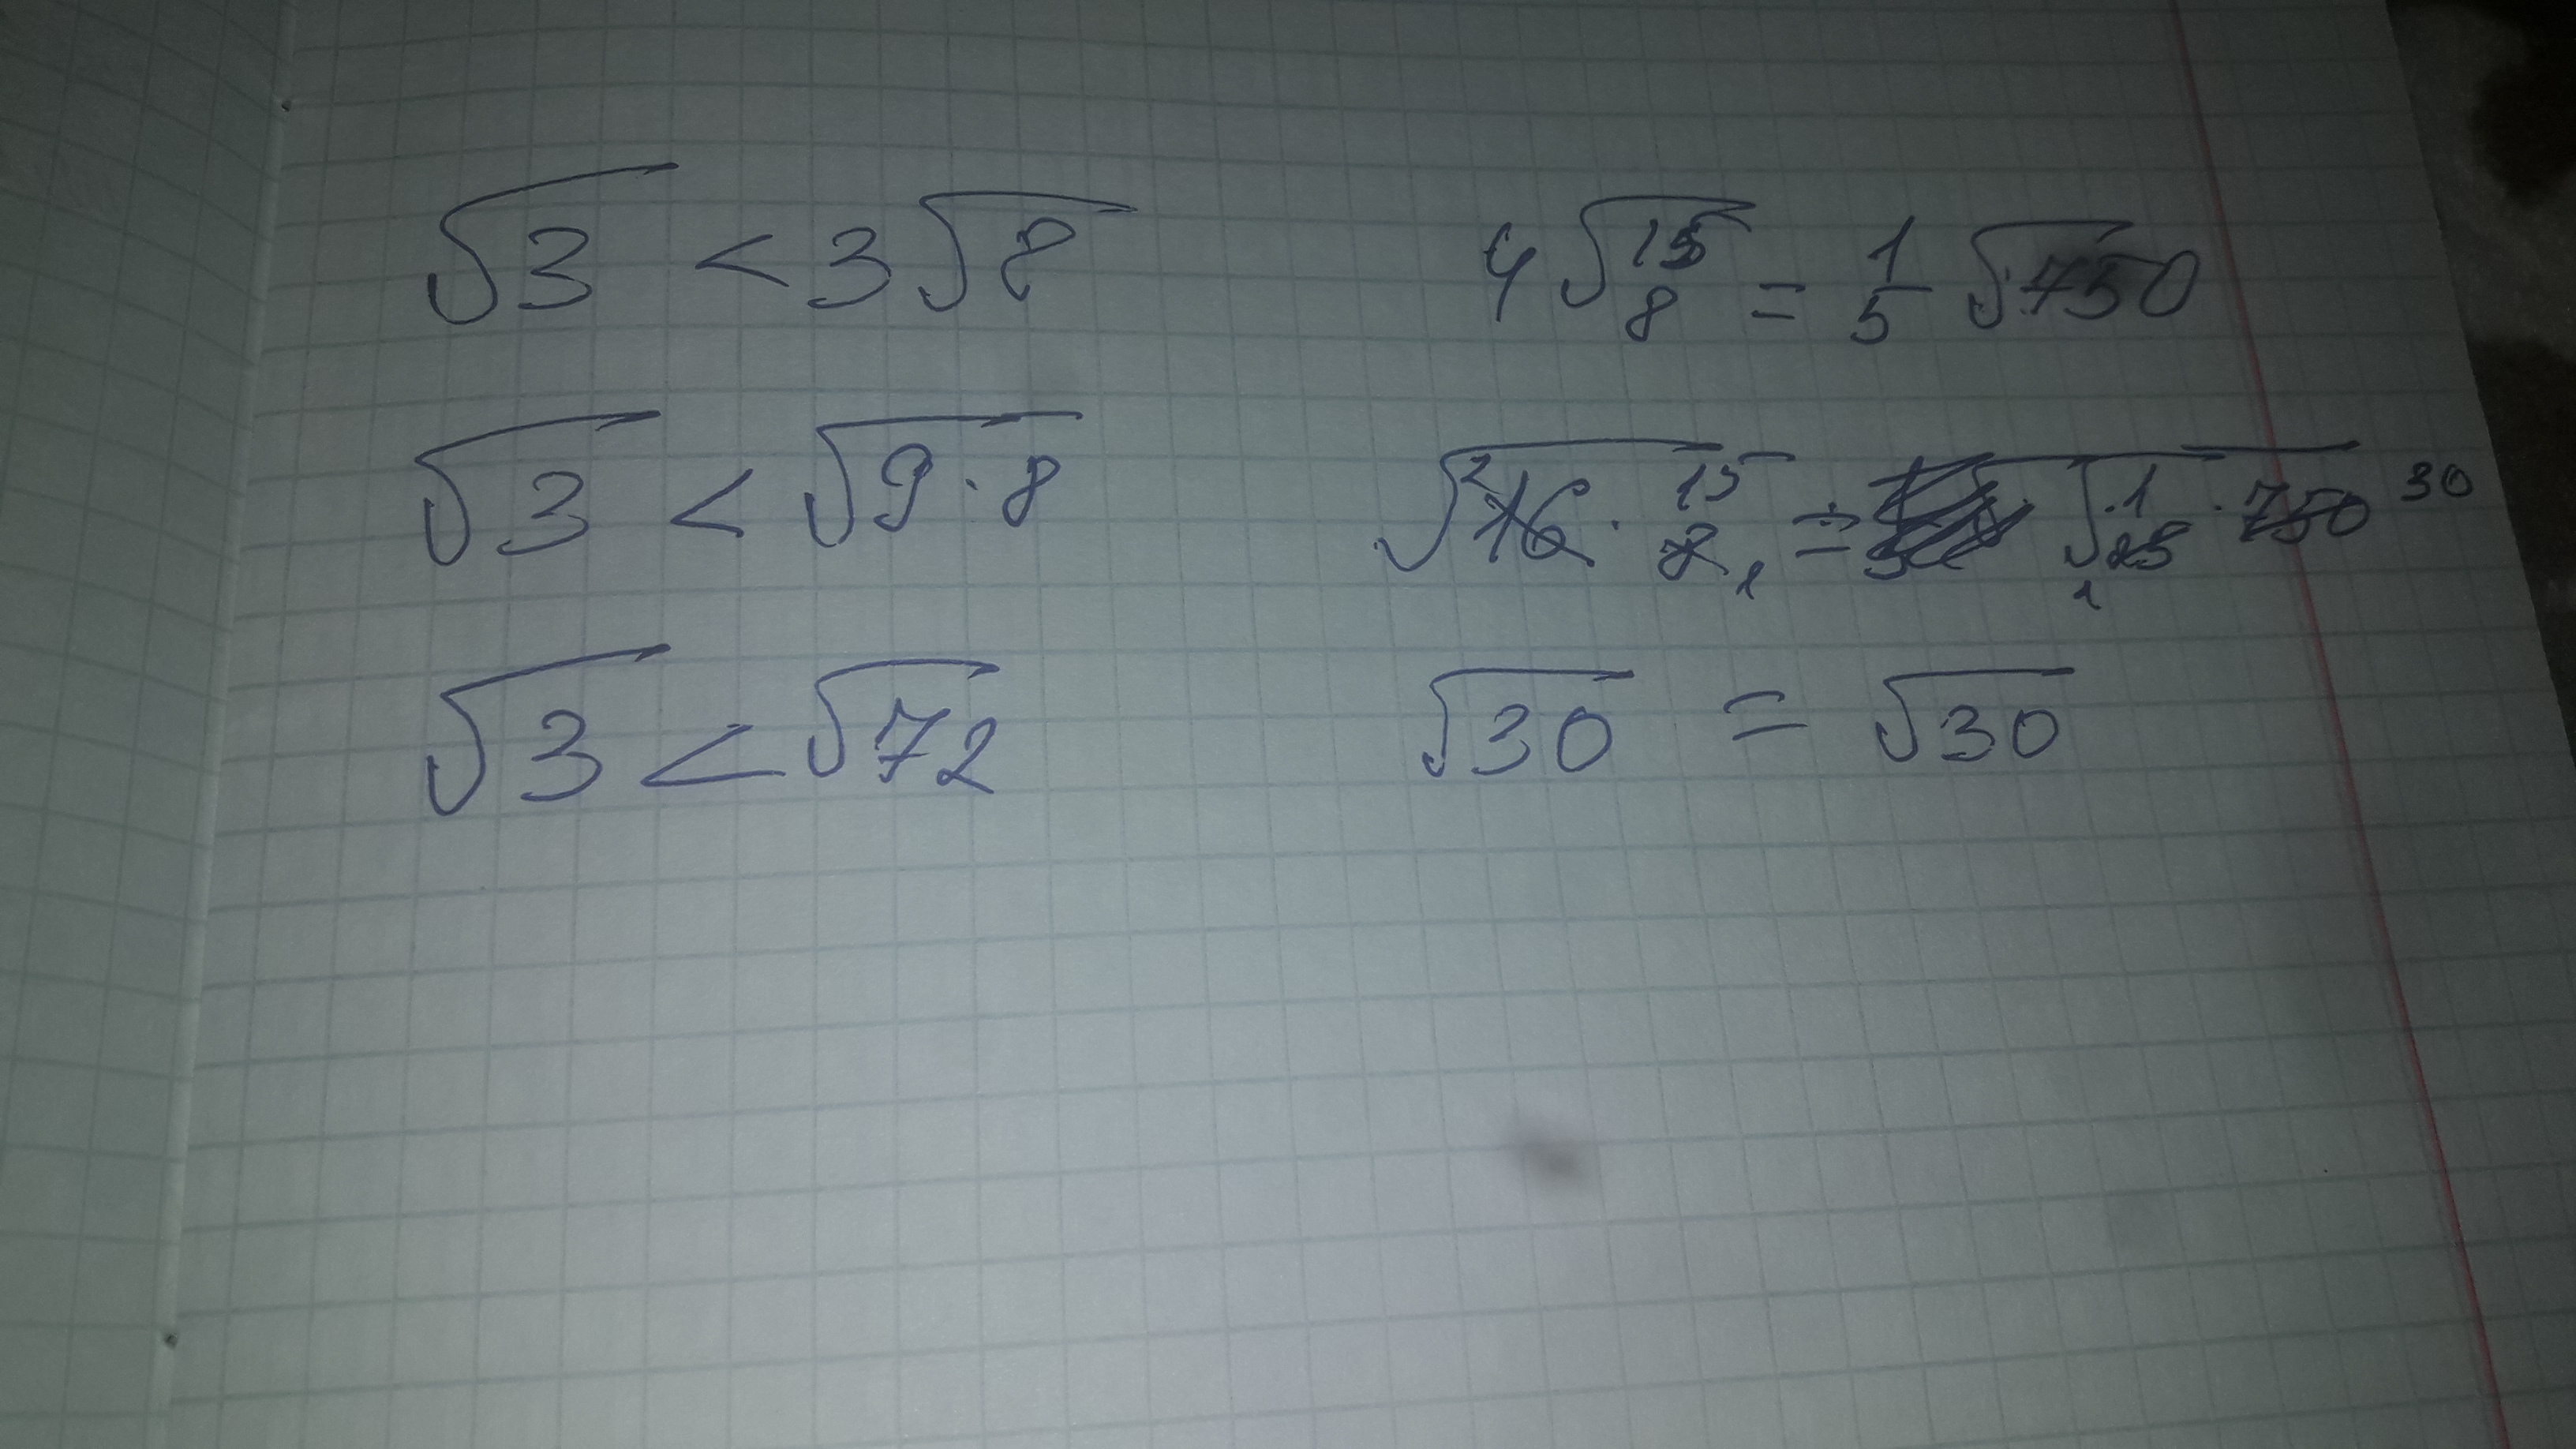 √3 < 3√8
√3 < √9·8
√3 < √72
4√15/8 = 1/5 √750
√16 · 15/8 = √1/25 · 750
2 1 1 30
√30 = √30